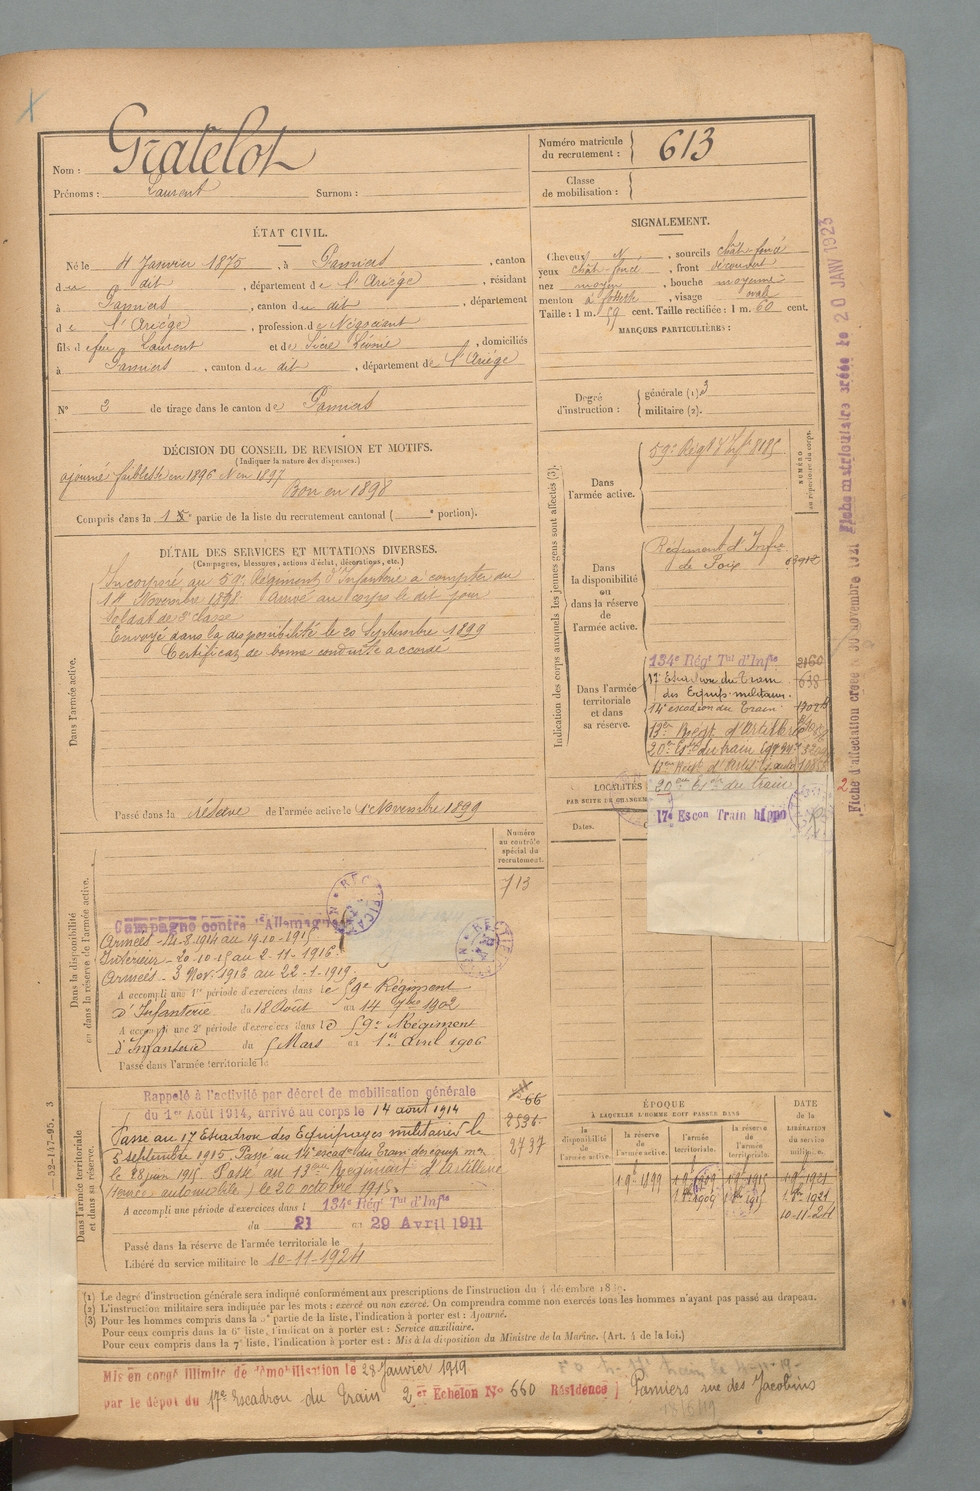 Nom : Gratelot
Prénoms : Laurent Surnom :
Numéro matricule du recrutement : 613
Classe de mobilisation :
ÉTAT CIVIL.
Né le 4 Janvier 1875, à Pamiers, canton
du dit, département de l'Ariége, résidant
à Pamiers, canton du dit, département
de l'Ariége, profession de Négociant
fils d e feu Laurent et de , domiciliés
à Pamiers, canton du dit, département de l'Ariége
N° 2 de tirage dans le canton de Pamiers
SIGNALEMENT.
Cheveux N, sourcils chât-foncé
yeux chât-foncé, front découvert
nez moyen, bouche moyenne
menton à fossette, visage oval
Taille : 1 m. 59 cent. Taille rectifiée : 1 m. 60 cent.
MARQUES PARTICULIÈRES :
Degré d'instruction : générale (1) 3
militaire (2).
DÉCISION DU CONSEIL DE REVISION ET MOTIFS.
(Indiquer la nature des dispenses.)
ajourné faiblesse en 1896 N en 1897
Bon en 1898
Compris dans la 1 partie de la liste du recrutement cantonal ( e portion).
DÉTAIL DES SERVICES ET MUTATIONS DIVERSES.
(Campagnes, blessures, actions d'éclat, décorations, etc.)
Dans l'armée active.
Incorporé au 59e Régiment d'Infanterie à compter du
14 Novembre 1898. Arrivé au corps le dit jour
soldat de 2e classe
Envoyé dans la disponibilité le 20 Septembre 1899
Certificat de bonne conduite accordé
Passé dans la réserve de l'armée active le 1er Novembre 1899
Indication des corps auxquels les jeunes gens sont affectés (3).
NUMÉRO au répertoire du corps.
Dans l'armée active.
59e Régt d'Infie 8185
Dans la disponibilité ou dans la réserve de l'armée active.
Régiment d'Infie
de Foix
Dans l'armée territoriale et dans sa réserve.
134e Régt Tal d'Infie 2160
17 Escadron du Train 638
des Equip. militaires.
14e escadron du Train
13e Régt d'Artillerie
20e Esc du train
20e Esc du train
17e Escon Train hippo
LOCALITÉS
PAR SUITE DE CHANGEM
Dates.
Numéro au contrôle spécial du recrutement.
713
Dans la disponibilité ou dans la réserve de l'armée active.
Campagne contre l'Allemagne
Armées - 14-8-1914 au 19-10-1915
Intérieur - 20-10-15 au 2-11-1916
Armées - 3 Nov. 1916 au 22-1-1919
A accompli une 1re période d'exercices dans le 59e Régiment
d'Infanterie du 18 Août au 14 7bre 1902
A accompli une 2e période d'exercices dans le 59e Régiment
d'Infanterie du 5 Mars au 1er Avril 1906
Passé dans l'armée territoriale le
Dans l'armée territoriale et dans sa réserve.
Rappelé à l'activité par décret de mobilisation générale
du 1er Août 1914, arrivé au corps le 14 août 1914
Passé au 17 Escadron des Equipages militaires le
5 septembre 1915. Passé au 14e escadon du train des equip. mres
le 28 juin 1915. Passé au 13ème Régiment d'Artillerie
(service automobile) le 20 octobre 1915.
A accompli une période d'exercices dans l 134e Régt Tal d'Infie
du 21 au 29 Avril 1911
Passé dans la réserve de l'armée territoriale le
Libéré du service militaire le 10-11-1924
66
2536
2737
ÉPOQUE
À LAQUELLE L'HOMME DOIT PASSER DANS
la disponibilité de l'armée active.
la réserve de l'armée active.
l'armée territoriale.
la réserve de l'armée territoriale.
DATE de la LIBÉRATION du service militaire.
10-11-24
(1) Le degré d'instruction générale sera indiqué conformément aux prescriptions de l'instruction du 4 décembre
(2) L'instruction militaire sera indiquée par les mots : exercé ou non exercé. On comprendra comme non exercés tous les hommes n'ayant pas passé au drapeau.
(3) Pour les hommes compris dans la 5e partie de la liste, l'indication à porter est : Ajourné.
Pour ceux compris dans la 6e liste, l'indication à porter est : Service auxiliaire.
Pour ceux compris dans la 7e liste, l'indication à porter est : Mis à la disposition du Ministre de la Marine. (Art. 4 de la loi.)
Mis en congé illimité de démobilisation le 28 Janvier 1919
par le dépôt du 17e Escadron du Train 2er Echelon N° 660 Résidence Pamiers rue des Jacobins
18/6/19
Fiche d'affectation créée le 30 Novembre 1921 Fiche matriculaire créée le 20 JANV 1923